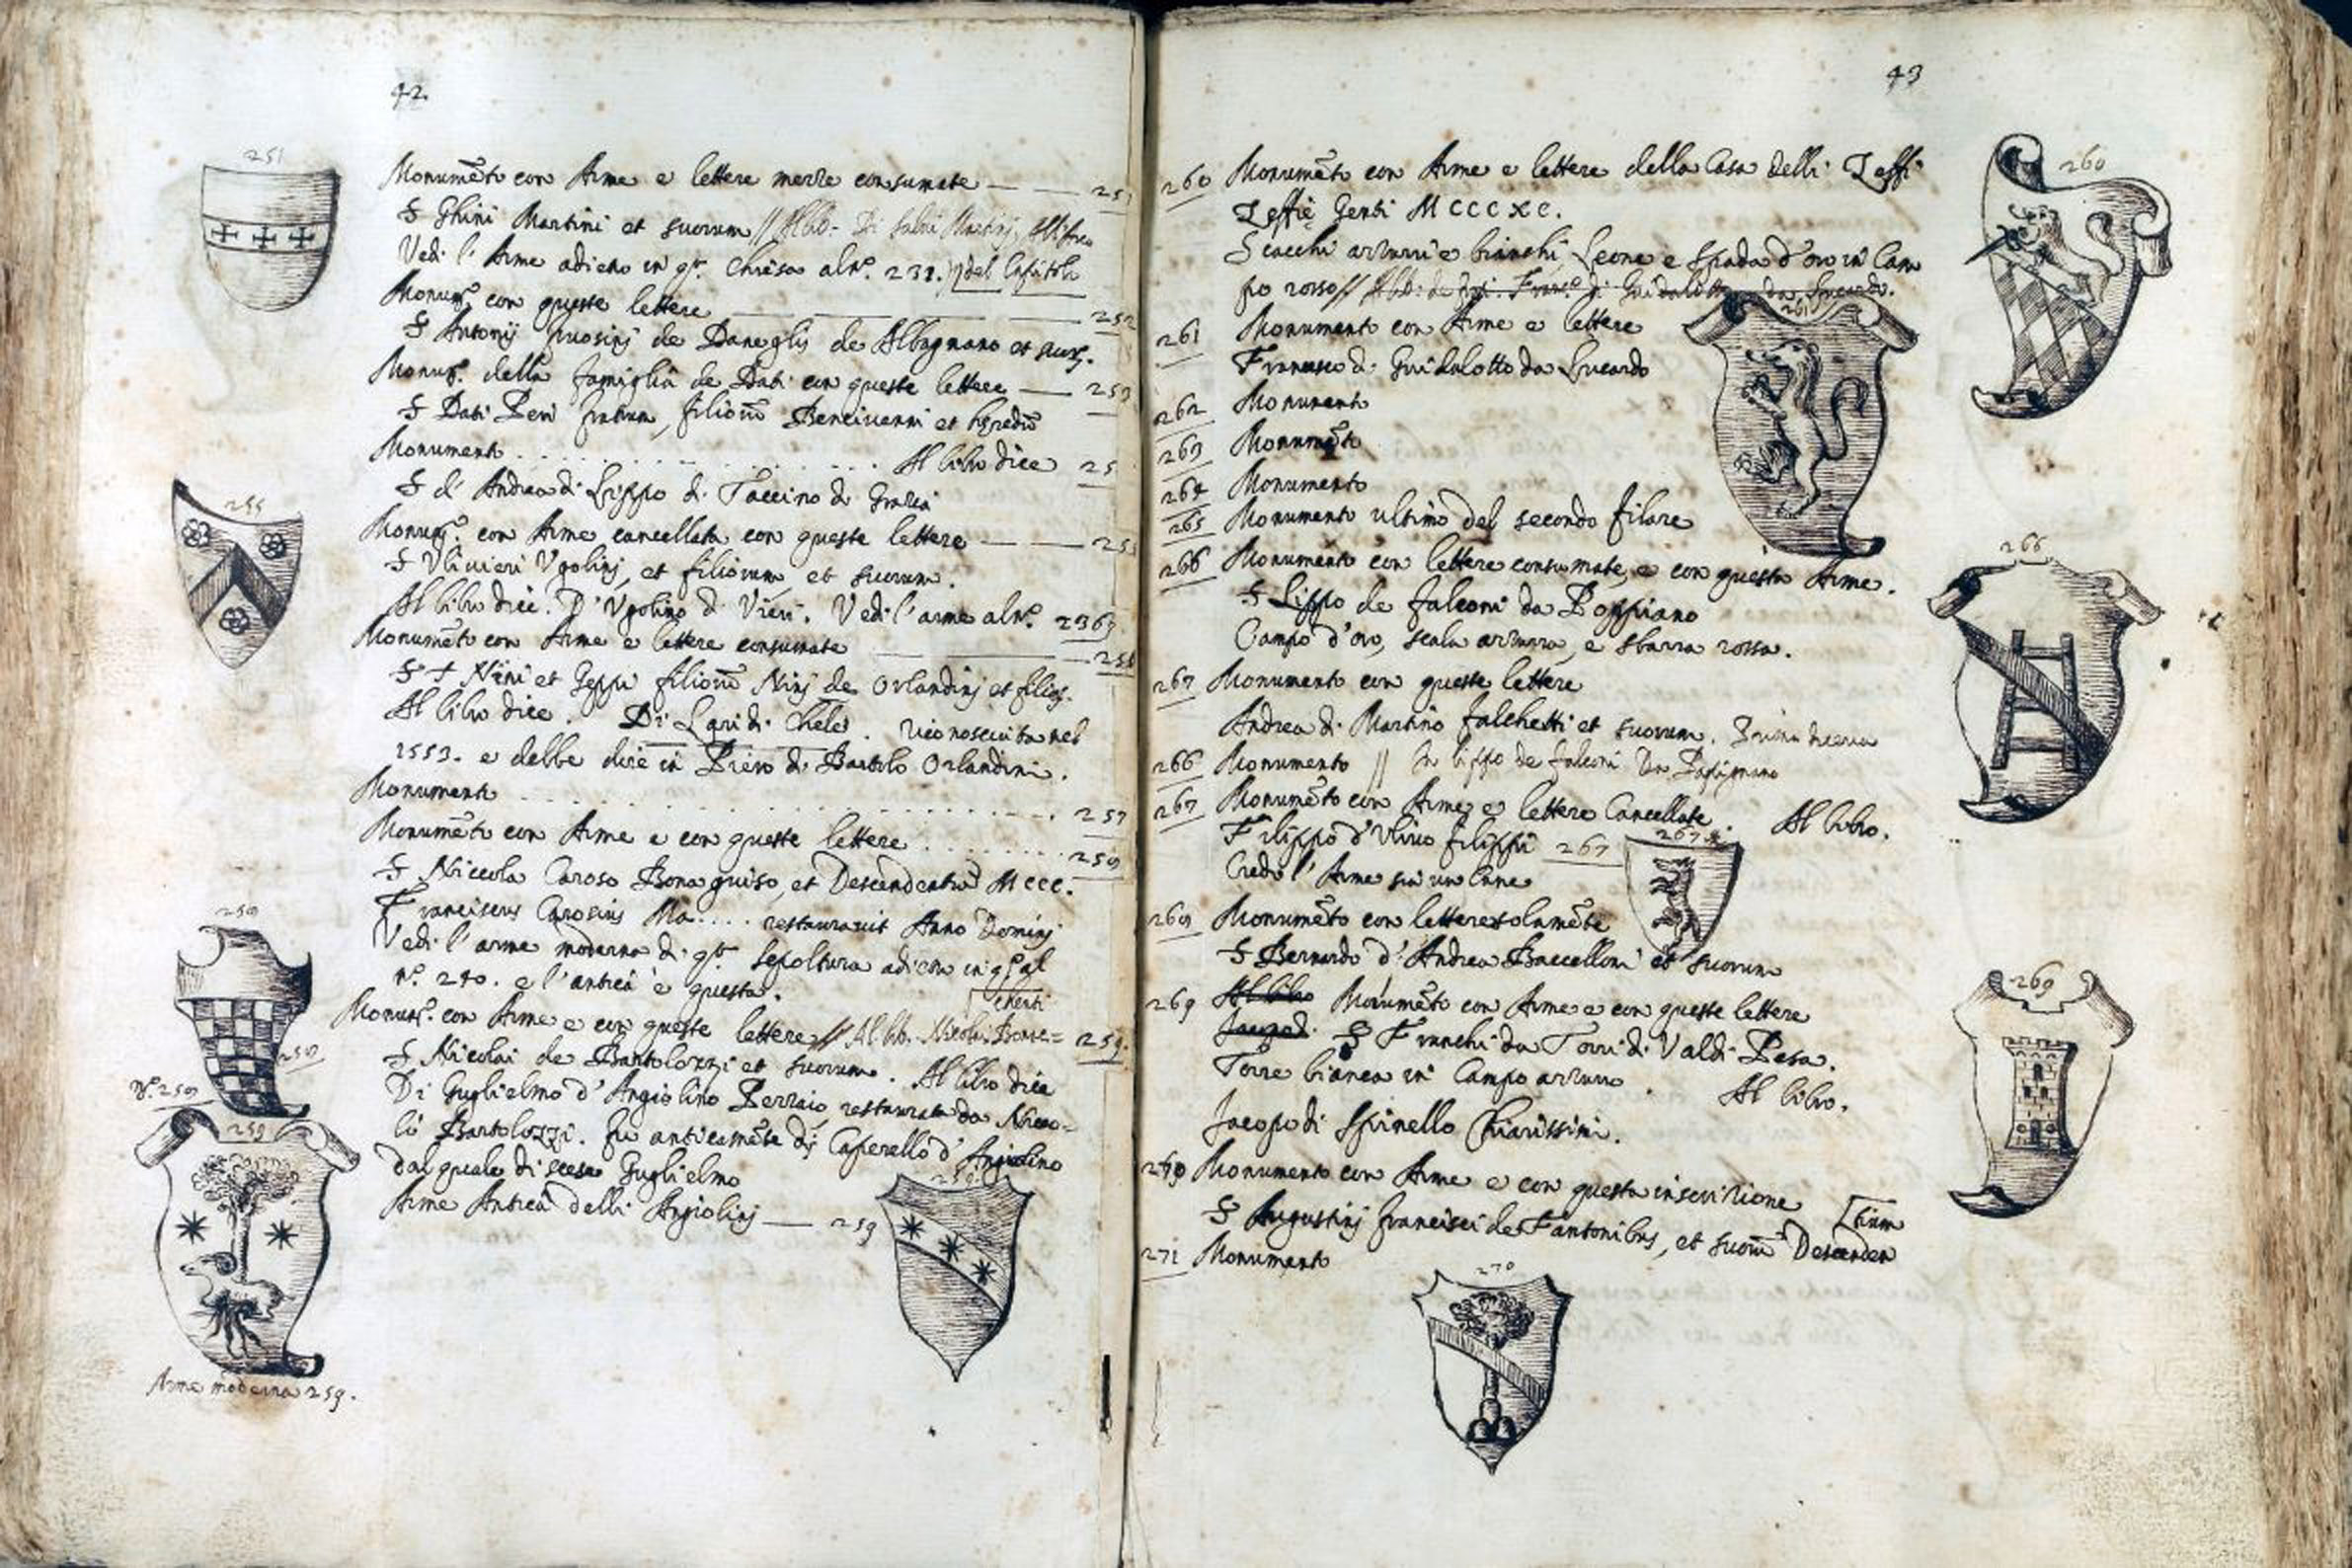 42.
251
Monumēto con Arme e lettere mezze consumate — — 251
S Ghini Martini et suorum // Al lib. Di Salvi Martini,
Vedi l'Arme adietro in qta. Chiesa al nº. 232. del Capitolo
Monumto. con queste lettere — — — 252
S Antonij de de Albagnano et suor.
Monumto. della famiglia de Dati con queste lettere — 253
S Dati Peri fratrum, filiorū Bencivenni et hęredū
Monumento . . . . . . . . . . Al libro dice 25
S d'Andrea di Lippo di Taccino di
255
Monumto. con Arme cancellata con queste lettere — — 255
S Vlivieri Vgolinj, et filiorum et suorum.
Al libro dice. D'Vgolino di Vieri. Vedi l'arme al nº. 2363
Monumēto con Arme e lettere consumate — — 256
S + Nini et Geppi filiorū Ninj de Orlandinj et filior.
Al libro dice. Di Lapi di Chele. riconosciuta nel
1553. e debbe dire di Piero di Bartolo Orlandini.
Monumento . . . . . . . . . . . . 257
Monumēto con Arme e con queste lettere . . . . . . 258
S Niccola Caroso Bonaguiso, et Descendentiū MCCC.
Franciscus Carosius Ma.... restauravit Anno Dominj
Vedi l'arme moderna di qta. sepoltura adietro in qº al
nº. 240. e l'antica è questa.
258
Monumto. con Arme e con queste lettere // Al lib. Nicolai Bonac= 259.
chenti
S Nicolai de Bartolozzi et suorum. Al libro dice
Di Guglielmo d'Angiolino Ferraio restaurata da Nicco=
lò Bartolozzi. fu anticamēte di Caperello d'Angiolino
dal quale discese Guglielmo
Arme Antica delli Angiolinj — 259
nº. 259
259
259
Arme moderna 259.
43
260 Monumēto con Arme e lettere della Casa delli Zeffi
Zeffię Genti MCCCXC.
Scacchi azzurri e bianchi, Leone e Spada d'oro in Cam
po rosso //
260
261 Monumento con Arme e lettere
Francesco di Guidalotto da Lucardo
261
262 Monumento
263 Monumēto
264 Monumento
265 Monumento ultimo del secondo filare
266 Monumento con lettere consumate, e con questa Arme.
S Lippo de falconi da Poppiano
Campo d'oro, scala azzurra, e sbarra rossa.
266
267 Monumento con queste lettere
Andrea di Martino falchetti et suorum. Prima diceva
266 Monumento // Di lippo de falconi Da
267 Monumēto con Arme, e lettere Cancellate. Al libro.
Filippo d'Vlivo filippi 267
Credo l'Arme sia un Cane
267
268 Monumēto con lettere solamēte
S Bernardo d'Andrea Baccelloni et suorum
269 Al libro Monumēto con Arme e con queste lettere
Jacopo d. S Franchi da Torri di Valdi Pesa.
Torre bianca in Campo azzurro. Al libro.
Jacopo di Spinello Chiarissimi.
269
270 Monumento con Arme e con questa inscrizione
S Augustinj francisci de Fantonibus, et suorū Descenden
tium
271 Monumento
270